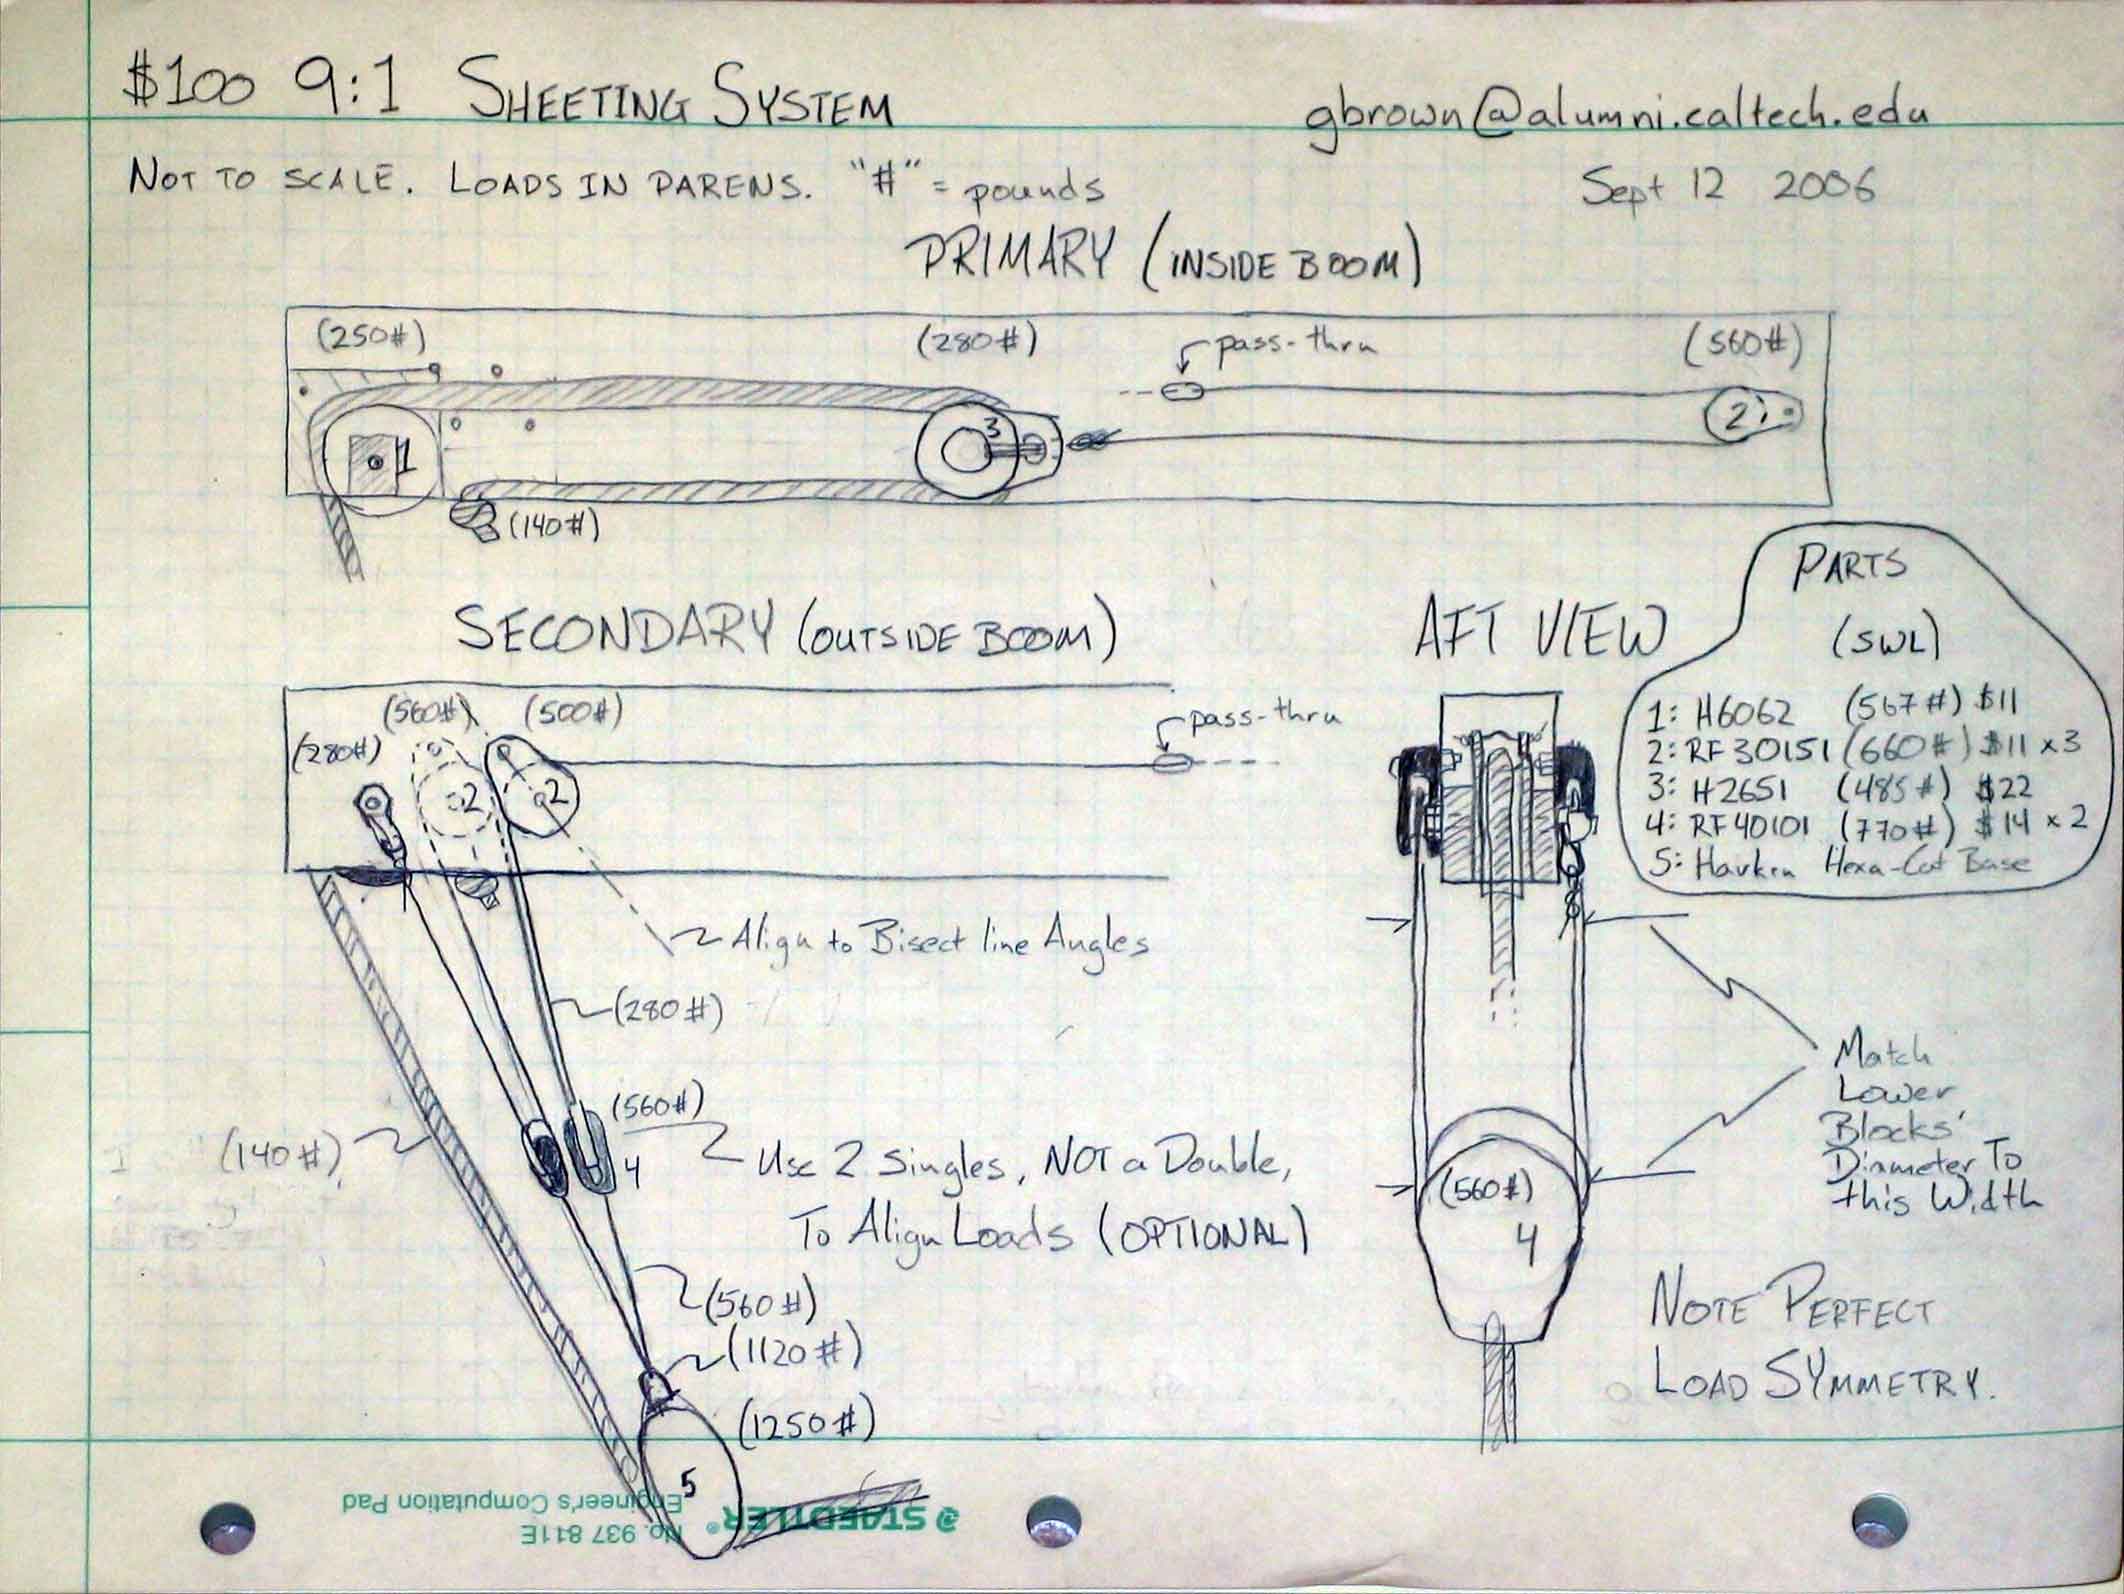 $100 9:1 SHEETING SYSTEM
gbrown@alumni.caltech.edu
NOT TO SCALE. LOADS IN PARENS. "#" = pounds
Sept 12 2006
PRIMARY (INSIDE BOOM)
(250#)
(280#)
pass-thru
(560#)
1
3
2
(140#)
SECONDARY (OUTSIDE BOOM)
(280#)
(560#)
(500#)
pass-thru
2
2
Align to Bisect line Angles
(280#)
(140#)
(560#)
4
Use 2 Singles, NOT a Double,
To Align Loads (OPTIONAL)
(560#)
(1120#)
(1250#)
5
AFT VIEW
(560#)
4
Match
Lower
Blocks'
Diameter To
this Width
NOTE PERFECT
LOAD SYMMETRY.
PARTS
(SWL)
1: H6062 (567#) $11
2: RF30151 (660#) $11 x3
3: H2651 (485#) $22
4: RF40101 (770#) $14 x2
5: Harken Hexa-Cat Base
STAEDTLER®
No. 937 811E
Engineer's Computation Pad